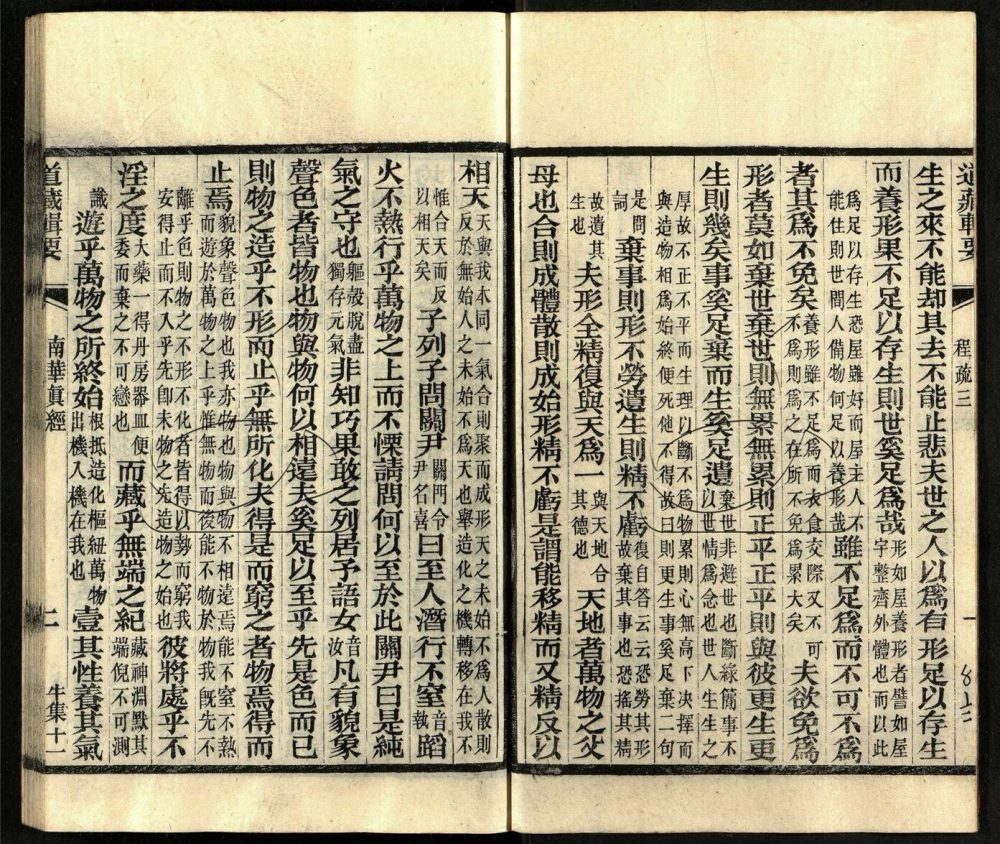 道藏輯要 程疏三 一
生之來不能却其去不能止悲夫世之人以爲有形足以存生
而養形果不足以存生則世奚足爲哉形如屋養形者譬如屋宇整齊外體也而以此
爲足以存生恐屋雖好而屋主人不能住則世間人備物何足以養形哉雖不足爲而不可不爲
者其爲不免矣養形雖不足爲而衣食交際又不可不爲則爲之在所不免爲累大矣夫欲免爲
形者莫如棄世棄世則無累無累則正平正平則與彼更生更
生則幾矣事奚足棄而生奚足遺棄世非避世也斷緣簡事不以世情爲念也世人生生之
厚故不正不平而生理以斷不爲物累則心無高下決擇而與造物相爲始終便死他不得故曰則更生事奚足棄二句
是問詞棄事則形不勞遺生則精不虧復自答云云恐勞其形故棄其事也恐搖其精
故遺其生也夫形全精復與天爲一與天地合其德也天地者萬物之父
母也合則成體散則成始形精不虧是謂能移精而又精反以
相天天與我本同一氣合則聚而成形天之未始不爲人散則反於無始人之未始不爲天也舉造化之機轉移在我不
惟合天而反以相天矣子列子問關尹關門令尹名喜曰至人潛行不窒音執蹈
火不熱行乎萬物之上而不慄請問何以至於此關尹曰是純
氣之守也軀殼脫盡獨存元氣非知巧果敢之列居予語女音汝凡有貌象
聲色者皆物也物與物何以相遠夫奚足以至乎先是色而已
則物之造乎不形而止乎無所化夫得是而窮之者物焉得而
止焉貌象聲色物也我亦物也物與物不相遠焉能不窒不熱而遊於萬物之上乎惟無物而後能不物於物我旣先不
離乎色則物之不形不化者皆得以勢而窮我安得止而不入乎先卽未物之先造物之始也彼將處乎不
淫之度大藥一得丹房器皿便委而棄之不可戀也而藏乎無端之紀藏神淵默其端倪不可測
識遊乎萬物之所終始根抵造化樞紐萬物出機入機在我也壹其性養其氣
道藏輯要 南華眞經 二 牛集十一